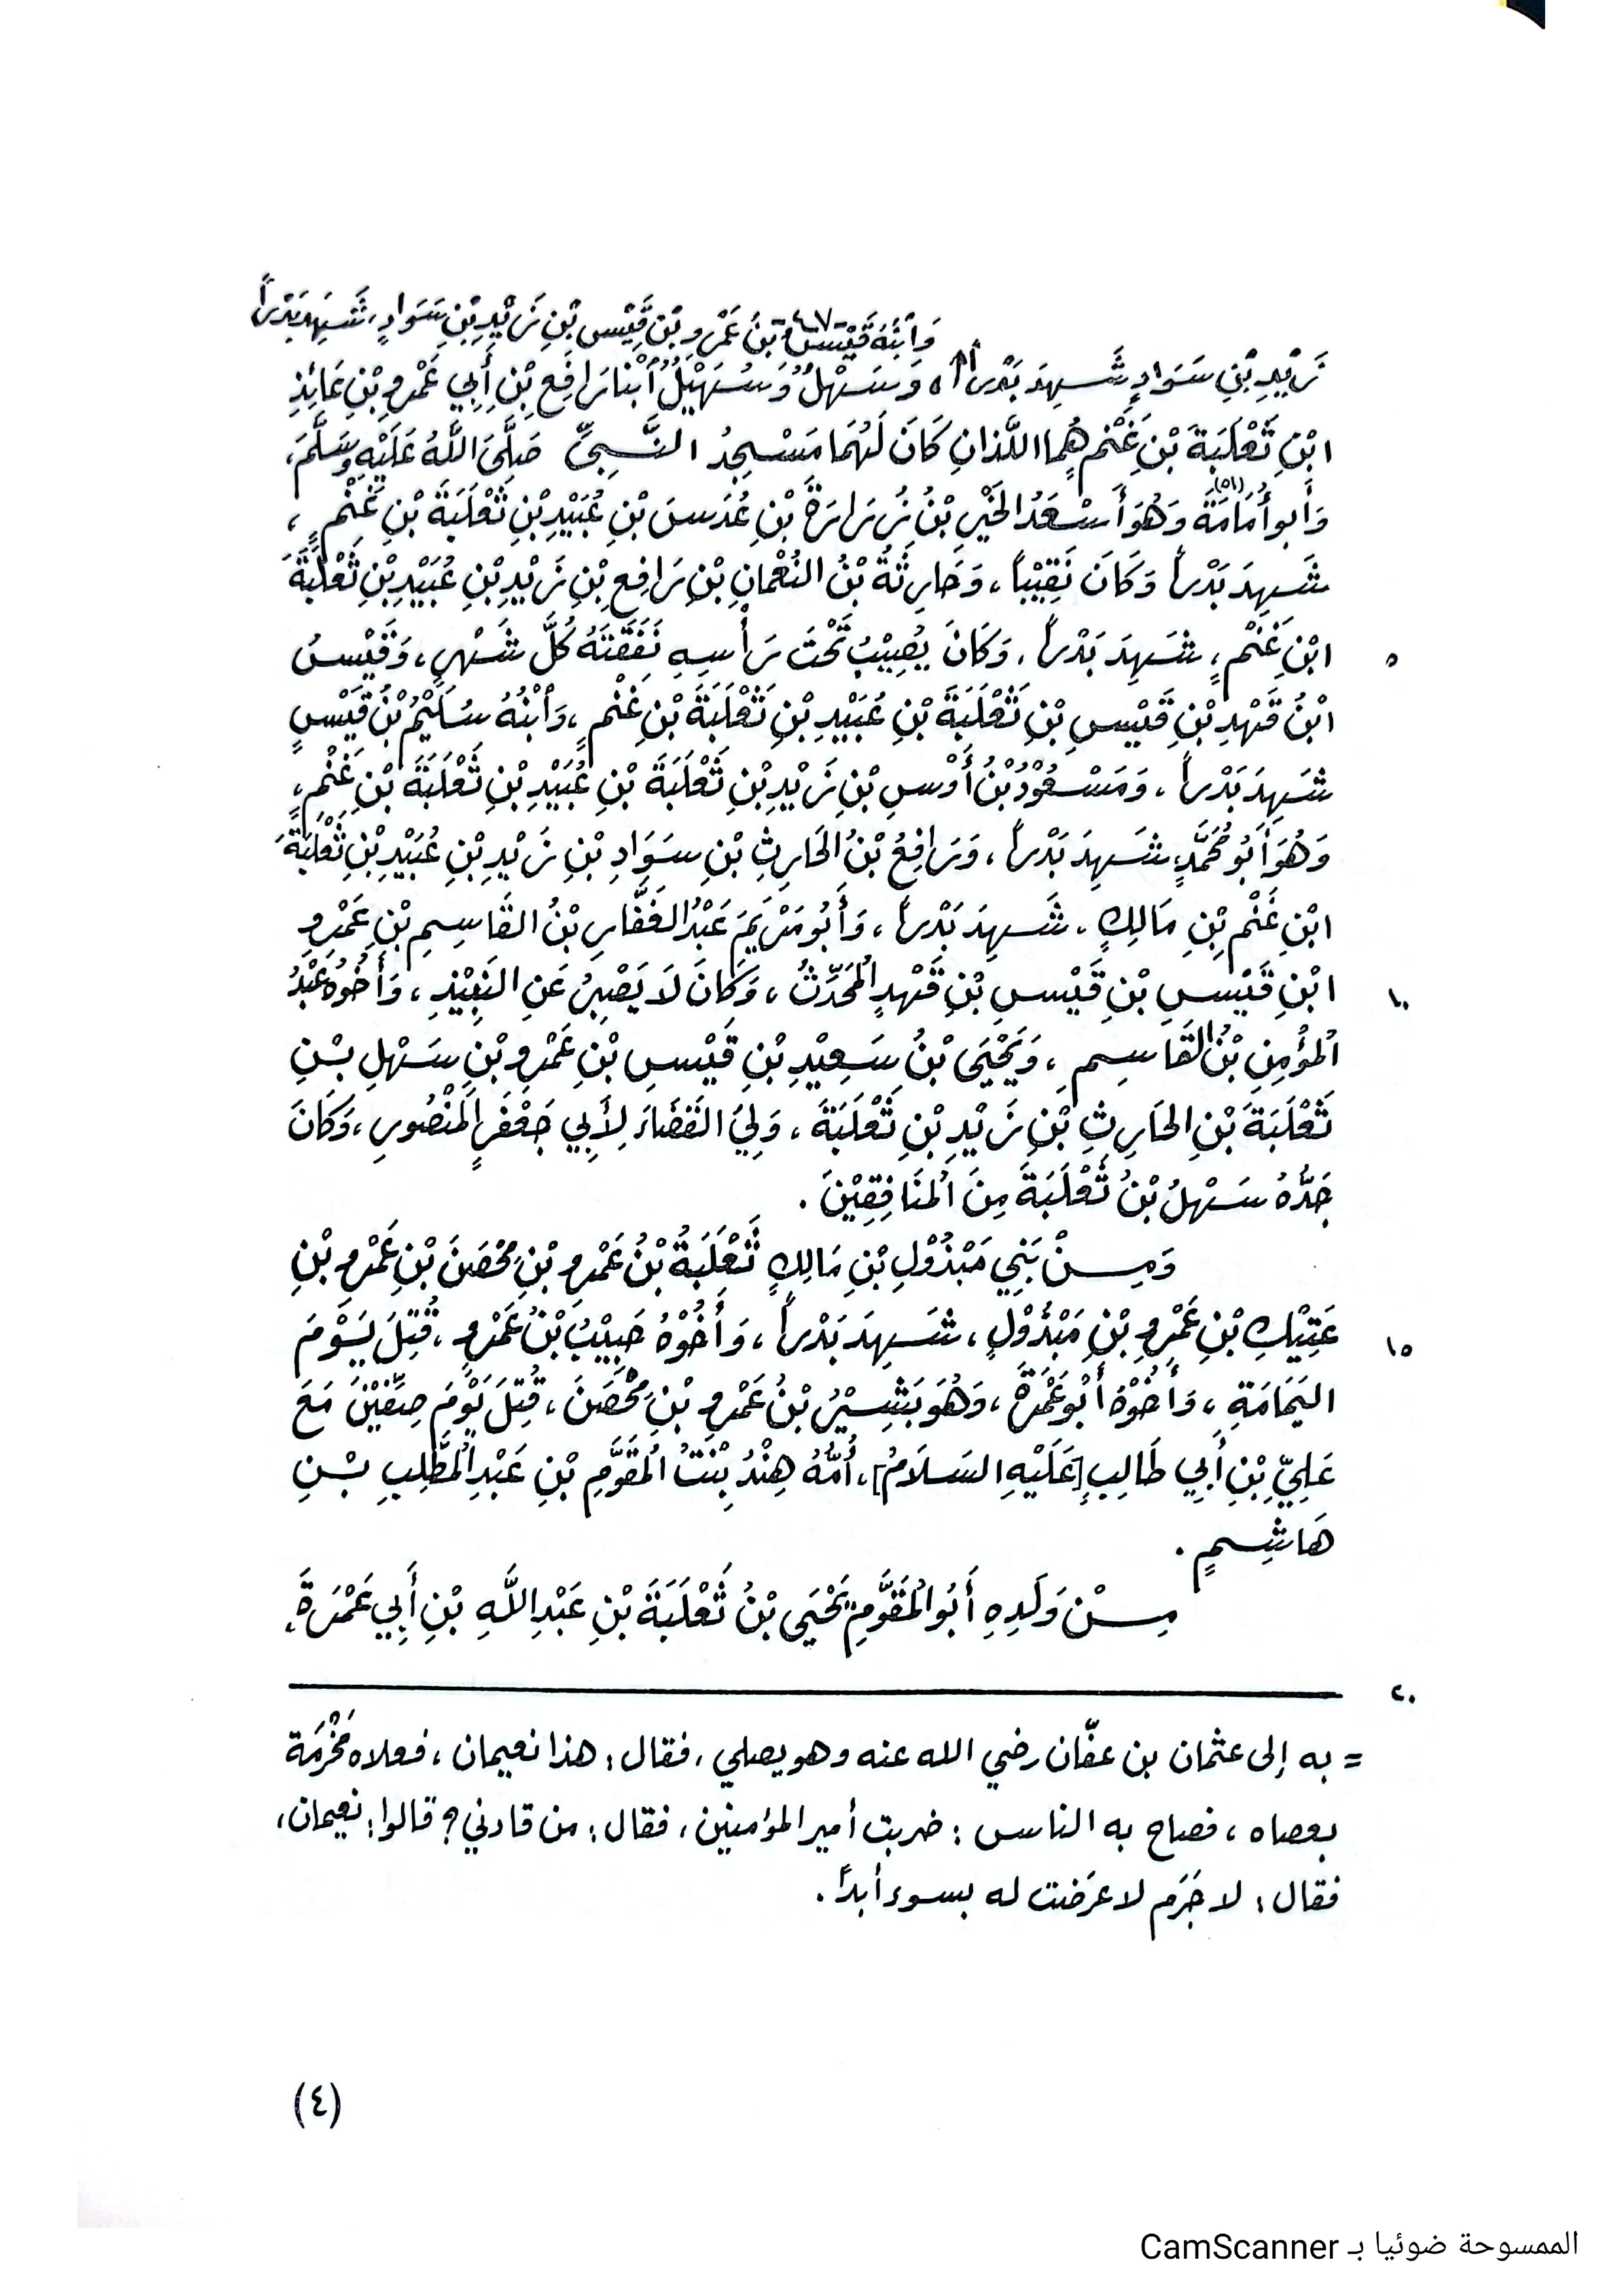 -٤٠٧-
وَٱبْنُهُ قَيْسُ بْنُ عَمْرِو بْنِ قَيْسِ بْنِ زَيْدِ بْنِ سَوَادٍ، شَهِدَ بَدْراً
زَيْدِ بْنِ سَوَادٍ شَهِدَ بَدْراً، وَسَهْلٌ وَسُهَيْلٌ ٱبْنا رَافِعِ بْنِ أَبِي عَمْرِو بْنِ عَائِذِ
ابْنِ ثَعْلَبَةَ بْنِ غَنْمٍ هُما اللَّذانِ كَانَ لَهُمَا مَسْجِدُ النَّبِيِّ صَلَّى اللَّهُ عَلَيْهِ وَسَلَّمَ،
وَأَبو أُمَامَةَ (٥١) وَهُوَ أَسْعَدُ الخَيْرِ بْنُ زُرَارَةَ بْنِ عُدَسَ بْنِ عُبَيْدِ بْنِ ثَعْلَبَةَ بْنِ غَنْمٍ،
شَهِدَ بَدْراً وَكَانَ نَقِيْباً، وَحَارِثَةُ بْنُ النُعْمانِ بْنِ رَافِعِ بْنِ زَيْدِ بْنِ عُبَيْدِ بْنِ ثَعْلَبَةَ
ابْنِ غَنْمٍ، شَهِدَ بَدْراً، وَكَانَ يُصِيْبُ تَحْتَ رَأْسِهِ نَفَقَتَهُ كُلَّ شَهْرٍ، وَقَيْسُ ٥
ابْنُ قَهْدِ بْنِ قَيْسِ بْنِ ثَعْلَبَةَ بْنِ عُبَيْدِ بْنِ ثَعْلَبَةَ بْنِ غَنْمٍ، وَٱبْنُهُ سُلَيْمُ بْنُ قَيْسٍ
شَهِدَ بَدْراً، وَمَسْعُوْدُ بْنُ أَوْسِ بْنِ زَيْدِ بْنِ ثَعْلَبَةَ بْنِ عُبَيْدِ بْنِ ثَعْلَبَةَ بْنِ غَنْمٍ،
وَهُوَ أَبُو مُحَمَّدٍ، شَهِدَ بَدْراً، وَرَافِعُ بْنُ الحَارِثِ بْنِ سَوَادِ بْنِ زَيْدِ بْنِ عُبَيْدِ بْنِ ثَعْلَبَةَ
ابْنِ غَنْمِ بْنِ مَالِكٍ، شَهِدَ بَدْراً، وَأَبُو مَرْيَمَ عَبْدُ الغَفَّارِ بْنُ القَاسِمِ بْنِ عَمْرِو
ابْنِ قَيْسِ بْنِ قَيْسِ بْنِ قَهْدٍ المُحَدِّثُ، وَكَانَ لَا يَصْبِرُ عَنِ النَبِيْذِ، وَأَخُوْهُ عَبْدُ ١٠
المُؤْمِنِ بْنُ القَاسِمِ، وَيَحْيَى بْنُ سَعِيْدِ بْنِ قَيْسِ بْنِ عَمْرِو بْنِ سَهْلِ بْنِ
ثَعْلَبَةَ بْنِ الحَارِثِ بْنِ زَيْدِ بْنِ ثَعْلَبَةَ، وَلِيَ القَضَاءَ لِأَبِي جَعْفَرٍ المَنْصُورِ، وَكَانَ
جَدُّهُ سَهْلُ بْنُ ثَعْلَبَةَ مِنَ المُنَافِقِيْنَ.
وَمِنْ بَنِي مَبْذُوْلِ بْنِ مَالِكٍ ثَعْلَبَةُ بْنُ عَمْرِو بْنِ مُحْصَنَ بْنِ عَمْرِو بْنِ
عَتِيْكِ بْنِ عَمْرِو بْنِ مَبْذُوْلٍ، شَهِدَ بَدْراً، وَأَخُوْهُ حَبِيْبُ بْنُ عَمْرٍو، قُتِلَ يَوْمَ ١٥
اليَمَامَةِ، وَأَخُوْهُ أَبُو عَمْرَةَ، وَهُوَ بَشِيْرُ بْنُ عَمْرِو بْنِ مُحْصَنَ، قُتِلَ يَوْمَ صِفِّيْنَ مَعَ
عَلِيِّ بْنِ أَبِي طَالِبٍ [عَلَيْهِ السَلَامُ]، أُمُّهُ هِنْدُ بِنْتُ المُقَوَّمِ بْنِ عَبْدِ المُطَّلِبِ بْنِ
هَاشِمٍ.
مِنْ وَلَدِهِ أَبُو المُقَوَّمِ يَحْيَى بْنُ ثَعْلَبَةَ بْنِ عَبْدِ اللَّهِ بْنِ أَبِي عَمْرَةَ،
٢٠
= به إلى عثمان بن عفّان رضي الله عنه وهو يصلي، فقال: هذا نعيمان، فعلاه مَخْرَمَة
بعصاه، فصاح به الناس: ضربت أمير المؤمنين، فقال: من قادني؟ قالوا: نعيمان،
فقال: لا جَرَم لا عَرَضت له بسوء أبداً.
(٤)
الممسوحة ضوئيا بـ CamScanner